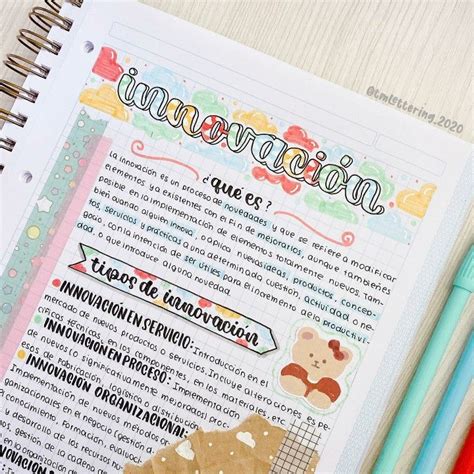 @tmlettering_2020
innovación
¿qué es?
La innovación es un proceso de novedades y que se refiere a modificar
elementos ya existentes con el fin de mejorarlos, aunque también es
posible en la implementación de elementos totalmente nuevos. Tam-
bién cuando alguien innova, aplica nuevas ideas, productos, concep-
tos, servicios y prácticas a una determinada cuestión, actividad o ne-
gocio, con la intención de ser útiles para el incremento de la productivi-
dad, o que introduce alguna novedad.
tipos de innovación
INNOVACIÓN EN SERVICIO: Introducción en el
mercado de nuevos productos o servicios. Incluye alteraciones
cas técnicas, en los componentes, en los materiales, etc.
INNOVACIÓN EN PROCESO: Implementación
de nuevos (o significativamente mejorados) proc
esos de fabricación, logística o distribución
INNOVACIÓN ORGANIZACIONAL:
Implementación de nuevos métodos
organizacionales en el negocio (gestión d
conocimiento, formación, evaluac